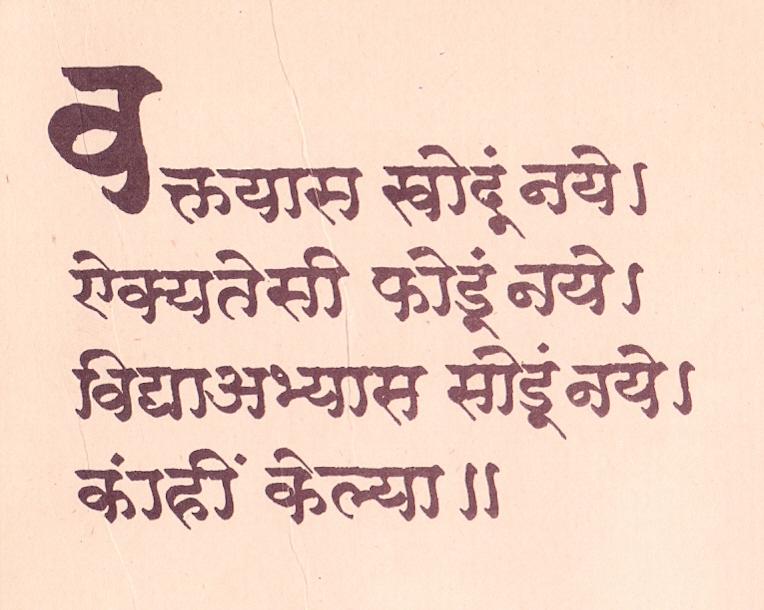 वक्तयास खोदूं नये।
ऐक्यतेसी फोडूं नये।
विद्याअभ्यास सोडूं नये।
कांहीं केल्या॥